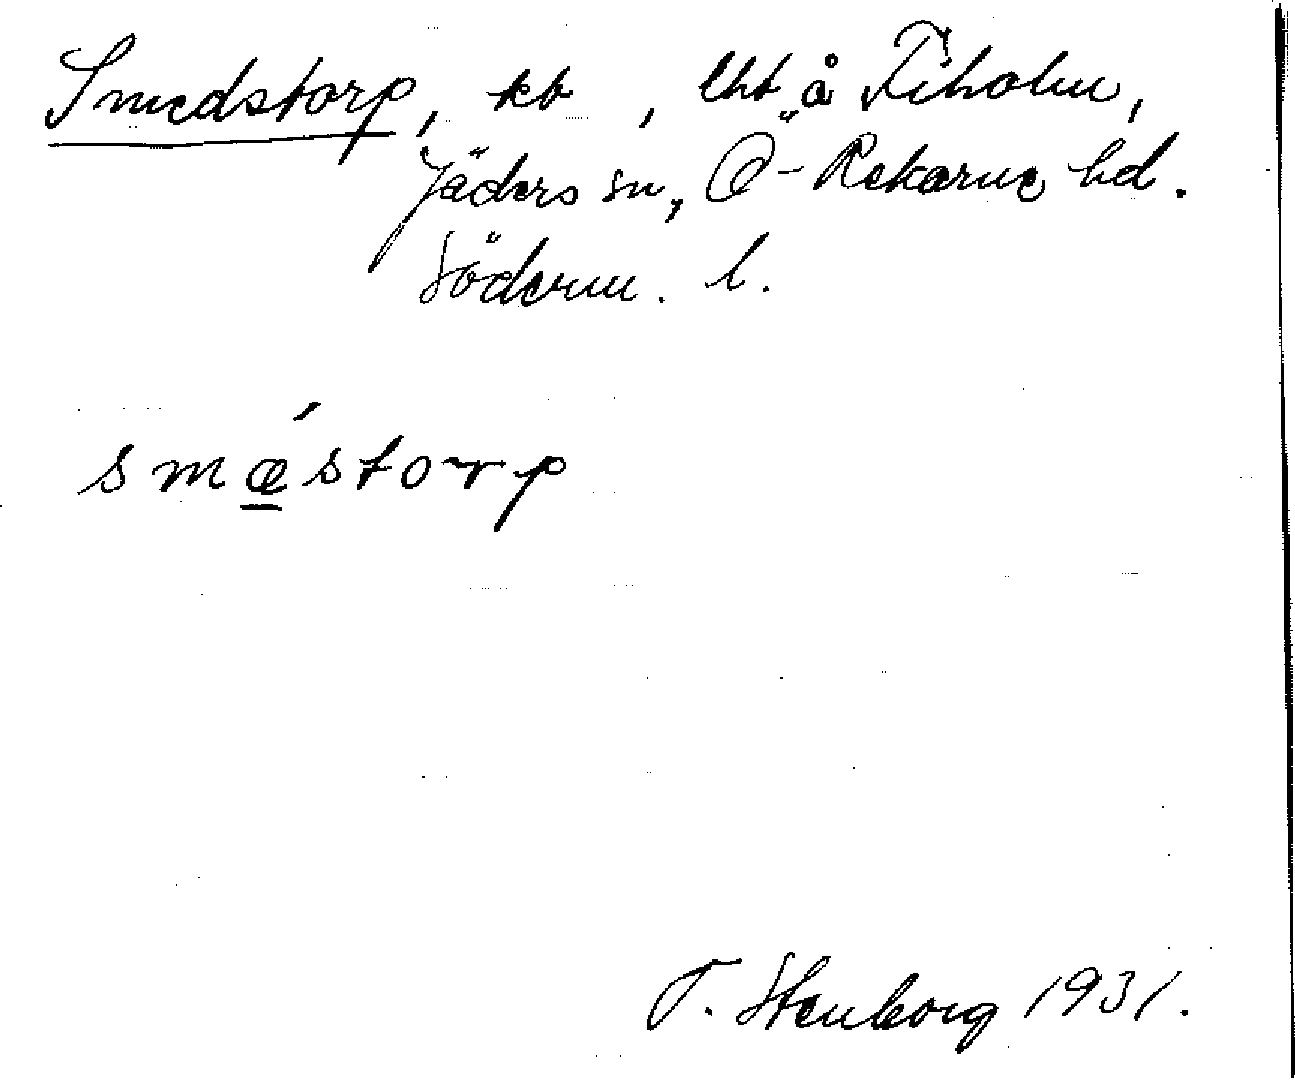 Smedstorp, kt, lht å Fiholm,
Jäders sn, Ö-Rekarne hd.
Söderm. l.
smǽ̱storp
T. Stenborg 1931.